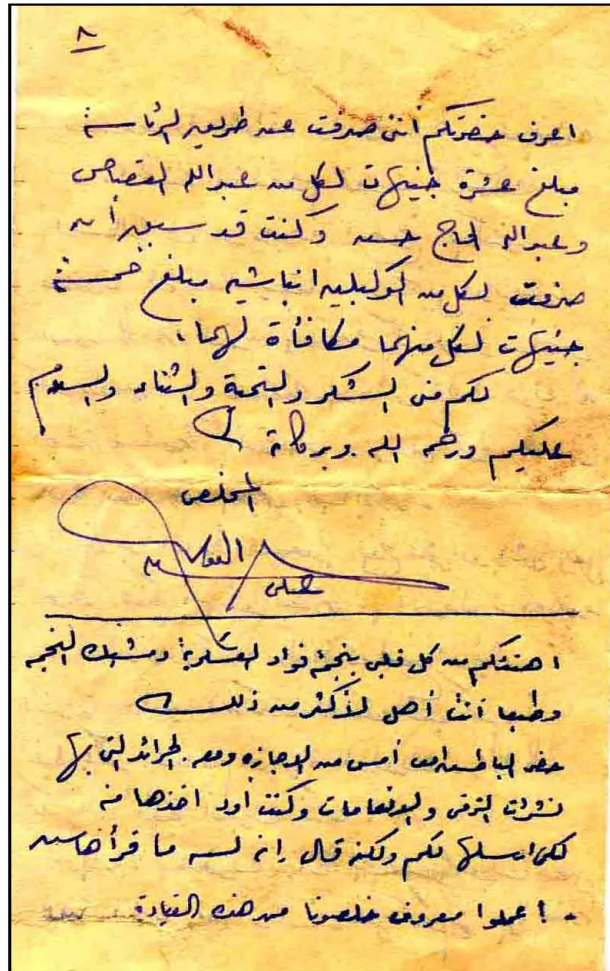 ٨
اعرف حضرتكم أننى صرفت عن طريق الرئاسة
مبلغ عشرة جنيهات لكل من عبد الله القصاص
وعبد الله الحاج حسن وكنت قد سبق أن
صرفت لكل من الوكيلين انباشيه مبلغ خمسة
جنيهات لكل منهما مكافأة لهما.
لكم منى الشكر والتحية والثناء والسلام
عليكم ورحمة الله وبركاته
المخلص
على
اهنئكم من كل قلبى بنجمة فؤاد العسكرية ومشبك النجمة
وطبعا أنت أهل لأكثر من ذلك
حضر أمس من الاجازه ومعه الجرائد التى بها
نشرات الترقى والإنعامات وكنت أود اخذها منه
لكى ارسلها لكم ولكنه قال إنه لسه ما قرأهاش
- اعملوا معروف خلصونا من هذه القيادة